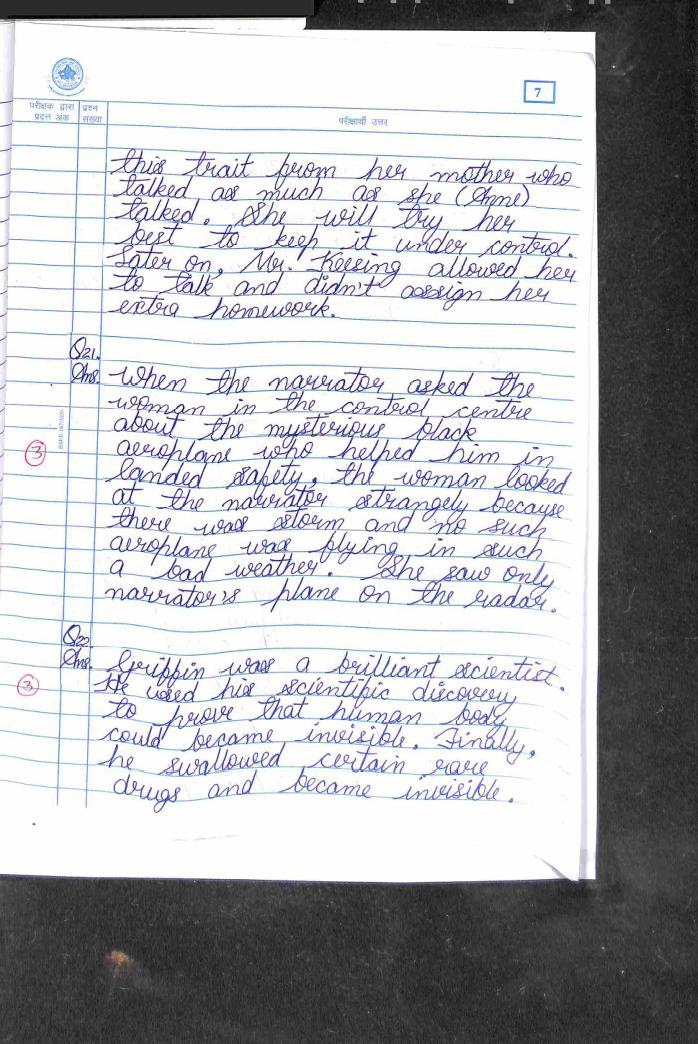 7
परीक्षक द्वारा प्रदत्त अंक
प्रश्न संख्या
परीक्षार्थी उत्तर
this trait from her mother who
talked as much as she (Anne)
talked. She will try her
best to keep it under control.
Later on, Mr. Keesing allowed her
to talk and didn't assign her
extra homework.
Q21.
Ans. When the narrator asked the
woman in the control centre
about the mysterious black
3
aeroplane who helped him in
landed safety, the woman looked
at the narrator strangely because
there was storm and no such
aeroplane was flying in such
a bad weather. She saw only
narrator's plane on the radar.
Q22.
Ans. Griffin was a brilliant scientist.
3
He used his scientific discovery
to prove that human body
could became invisible. Finally,
he swallowed certain rare
drugs and became invisible.